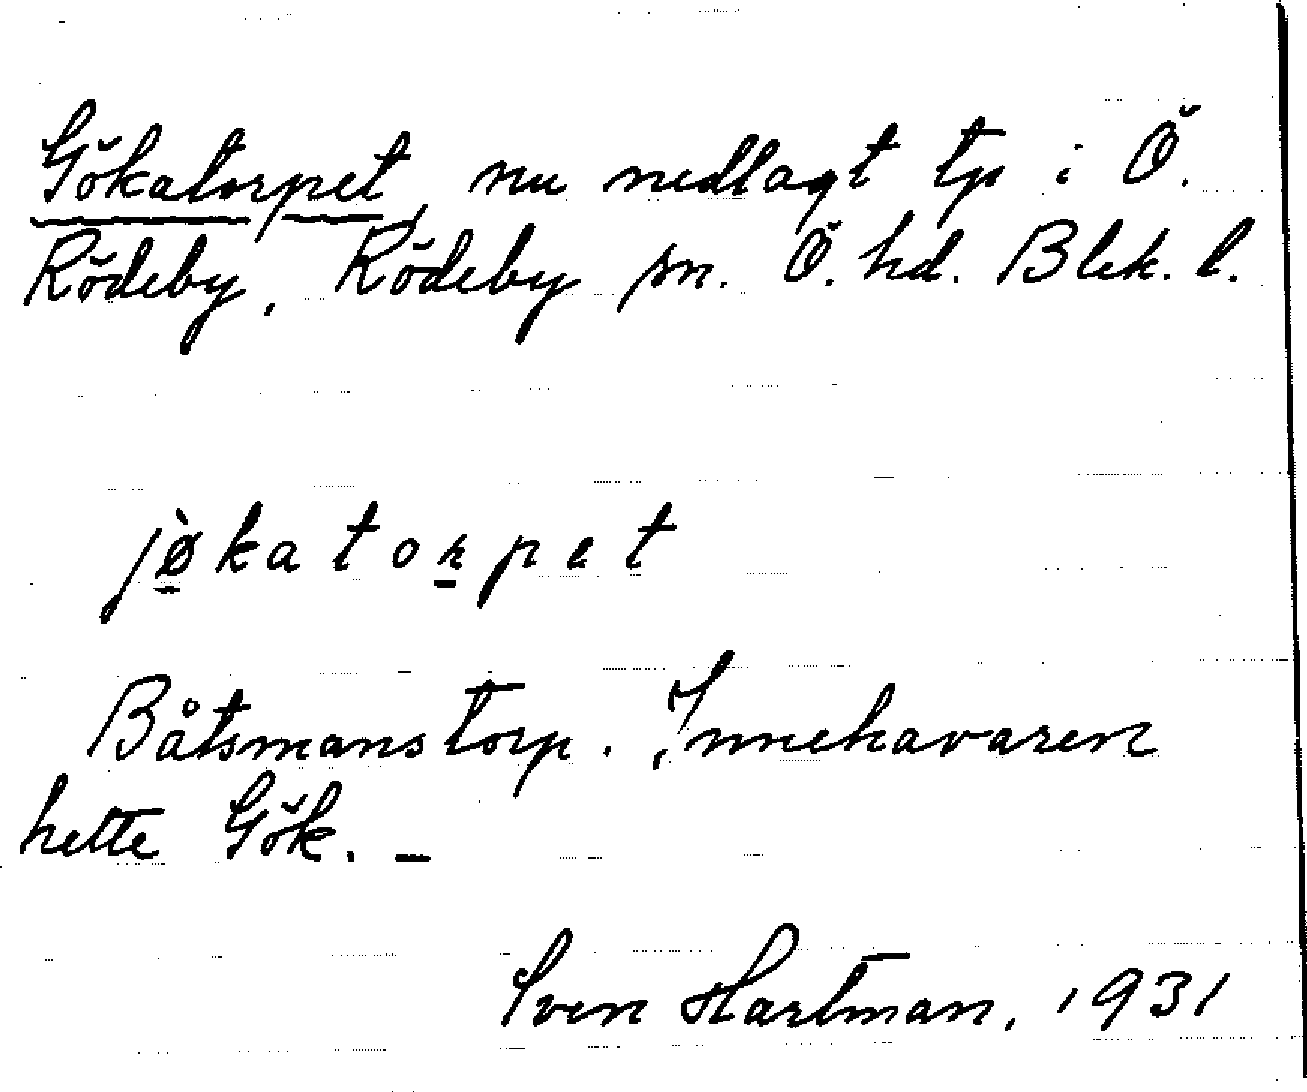 Gökatorpet, nu nedlagt tp i Ö.
Rödeby. Rödeby sn. Ö. hd. Blek. l.
jø̀katorpet
Båtsmanstorp. Innehavaren
hette Gök. –
Sven Hartman, 1931